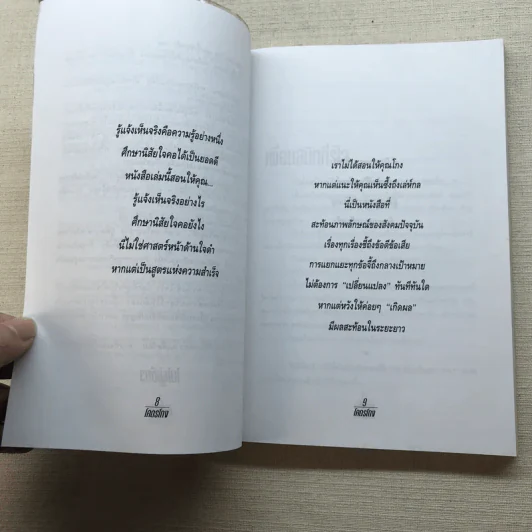 รู้แจ้งเห็นจริงคือความรู้อย่างหนึ่ง
ศึกษานิสัยใจคอได้เป็นยอดดี
หนังสือเล่มนี้สอนให้คุณ...
รู้แจ้งเห็นจริงอย่างไร
ศึกษานิสัยใจคอยังไง
นี่ไม่ใช่ศาสตร์หน้าด้านใจดำ
หากแต่เป็นสูตรแห่งความสำเร็จ
8
โคตรโกง
เราไม่ได้สอนให้คุณโกง
หากแต่แนะให้คุณเห็นซึ้งถึงเล่ห์กล
นี่เป็นหนังสือที่
สะท้อนภาพลักษณ์ของสังคมปัจจุบัน
เรื่องทุกเรื่องชี้ถึงข้อดีข้อเสีย
การแยกแยะทุกข้อจี้ถึงกลางเป้าหมาย
ไม่ต้องการ "เปลี่ยนแปลง" ทันทีทันใด
หากแต่หวังให้ค่อยๆ "เกิดผล"
มีผลสะท้อนในระยะยาว
9
โคตรโกง